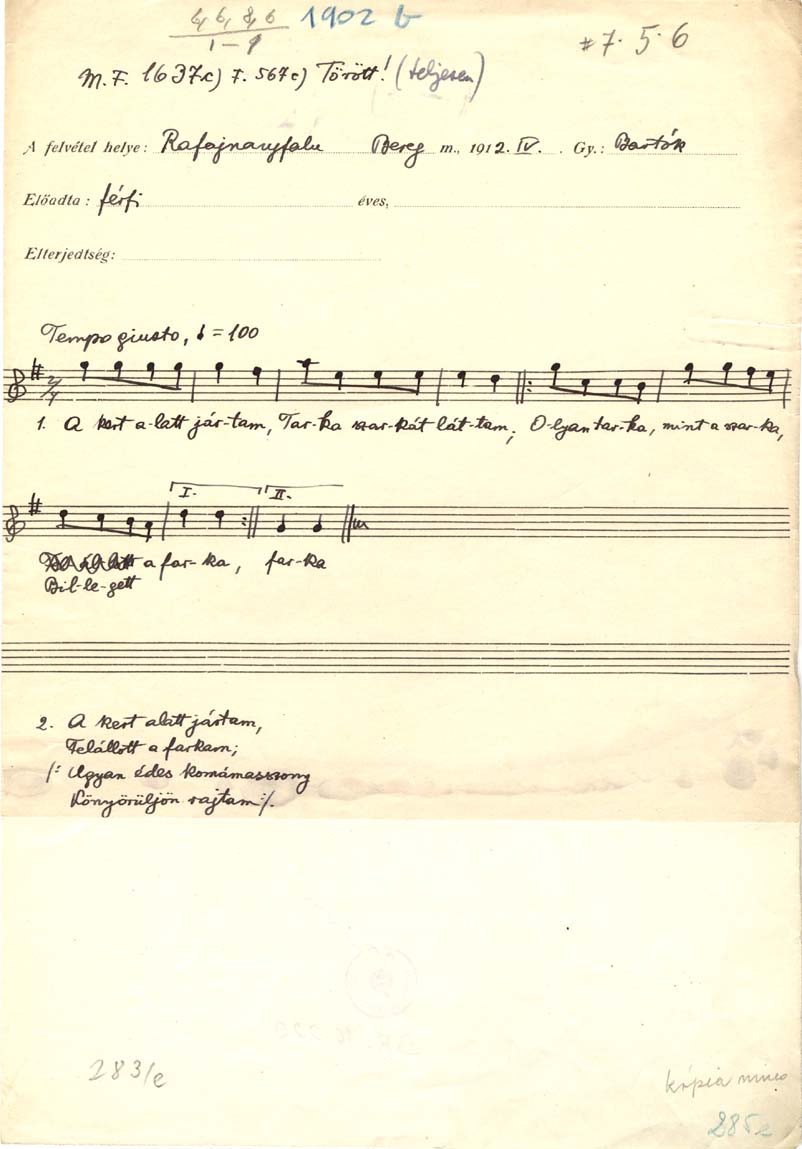 6, 6, 8, 6 1902 b
1–9 #7. 5. 6
M. F. 1637c) F. 567c) Törött! (teljesen)
A felvétel helye: Rafajnaujfalu Bereg m., 1912. IV. . Gy.: Bartók
Előadta: férfi éves,
Elterjedtség:
Tempo giusto, = 100
2/4
1. A kert a-latt jár-tam, Tar-ka szar-kát lát-tam; O-lyan tar-ka, mint a szar-ka,
I. II.
a far-ka, far-ka
Bil-le-gett
2. A kert alatt jártam,
Felállott a farkam;
/: Ugyan édes komámasszony
Könyörüljön rajtam :/.
283/e
kópia nincs
285e